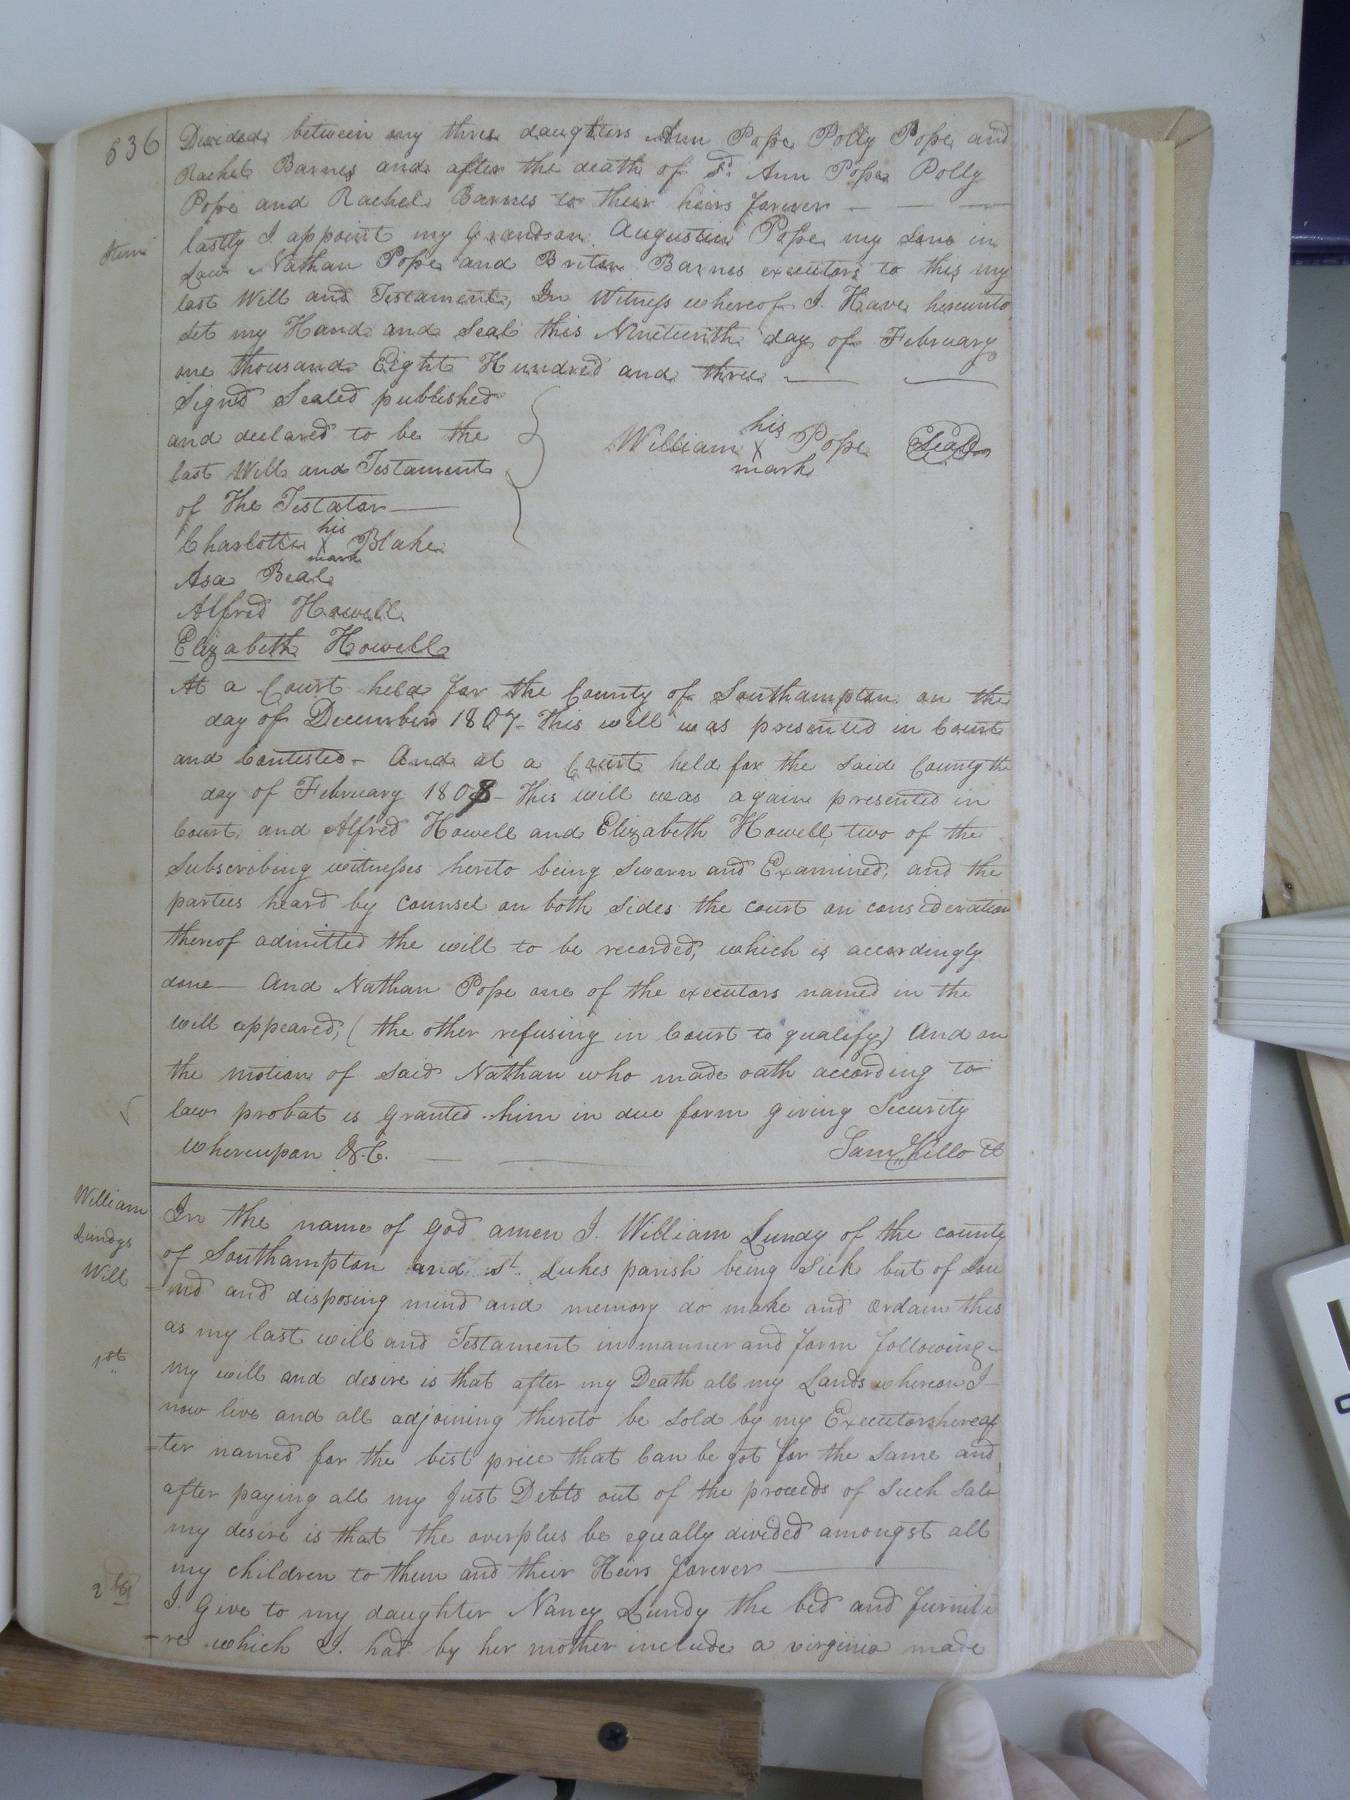 536
Divided between my three daughters Ann Pope Polly Pope and
Rachel Barnes and after the death of Sd. Ann Pope Polly
Pope and Rachel Barnes to their heirs forever — — —
Item
lastly I appoint my Grandson Augustin Pope my Sons in
Law Nathan Pope and Briton Barnes executors to this my
last Will and Testament, In Witness whereof I Have hereunto
set my Hand and Seal this Nineteenth day of February
one thousand Eight Hundred and three — —
Signd Sealed published
and declared to be the
last Will and Testament
of The Testator —
his
William X Pope Seal
mark
his
Charlotte X Blake
mark
Asa Beal
Alfred Howell
Elizabeth Howell
At a Court held for the County of Southampton on the
day of December 1807— This will was presented in Court
and Contested— And at a Court held for the said County th
day of February 1808— This will was again presented in
Court, and Alfred Howell and Elizabeth Howell, two of the
Subscrobing witnesses hereto being Sworn and Examined, and the
parties heard by Counsel on both Sides the court on consideration
thereof admitted the will to be recorded, which is accordingly
done— And Nathan Pope one of the executors named in the
will appeared, (the other refusing in Court to qualify) And on
the motion of Said Nathan who made oath according to
law probat is granted him in due form giving Security
whereupon &.C. — — Saml Kello
William
Lundys
Will
In the name of God amen I William Lundy of the county
of Southampton and St. Lukes parish being Sick but of Sou
=nd and disposing mind and memory do make and ordain this
as my last will and Testament in manner and form following—
1st
my will and desire is that after my Death all my Lands whereon I
now live and all adjoining thereto be Sold by my Executors hereaf
=ter named for the best price that Can be got for the Same and
after paying all my Just Debts out of the proceeds of Such Sale
my desire is that the overplus be equally divided amongst all
my children to them and their Heirs forever —
2
I Give to my daughter Nancy Lundy the bed and furnitu
=re which I had by her mother include a virginia made